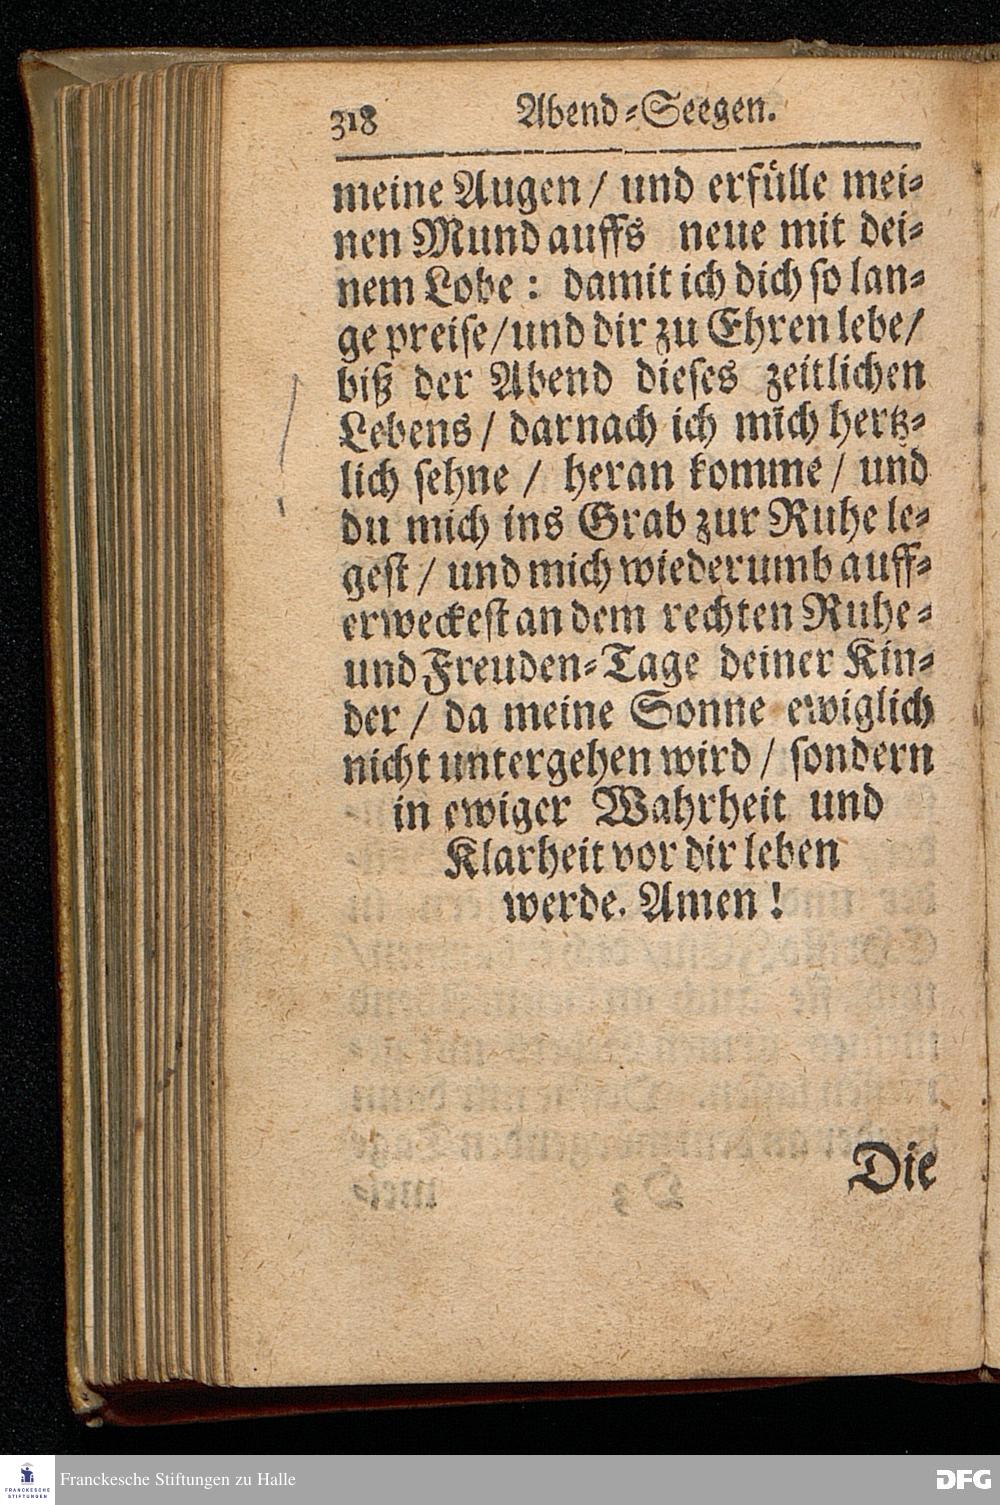 318 Abend-Seegen.
meine Augen / und erfülle mei-
nen Mund auffs neue mit dei-
nem Lobe : damit ich dich so lan-
ge preise/ und dir zu Ehren lebe/
biß der Abend dieses zeitlichen
Lebens / darnach ich mich hertz-
lich sehne / heran komme / und
du mich ins Grab zur Ruhe le-
gest / und mich wiederumb auff-
erweckest an dem rechten Ruhe-
und Freuden-Tage deiner Kin-
der / da meine Sonne ewiglich
nicht untergehen wird / sondern
in ewiger Wahrheit und
Klarheit vor dir leben
werde. Amen !
Die
FRANCKESCHE
STIFTUNGEN
Franckesche Stiftungen zu Halle
DFG